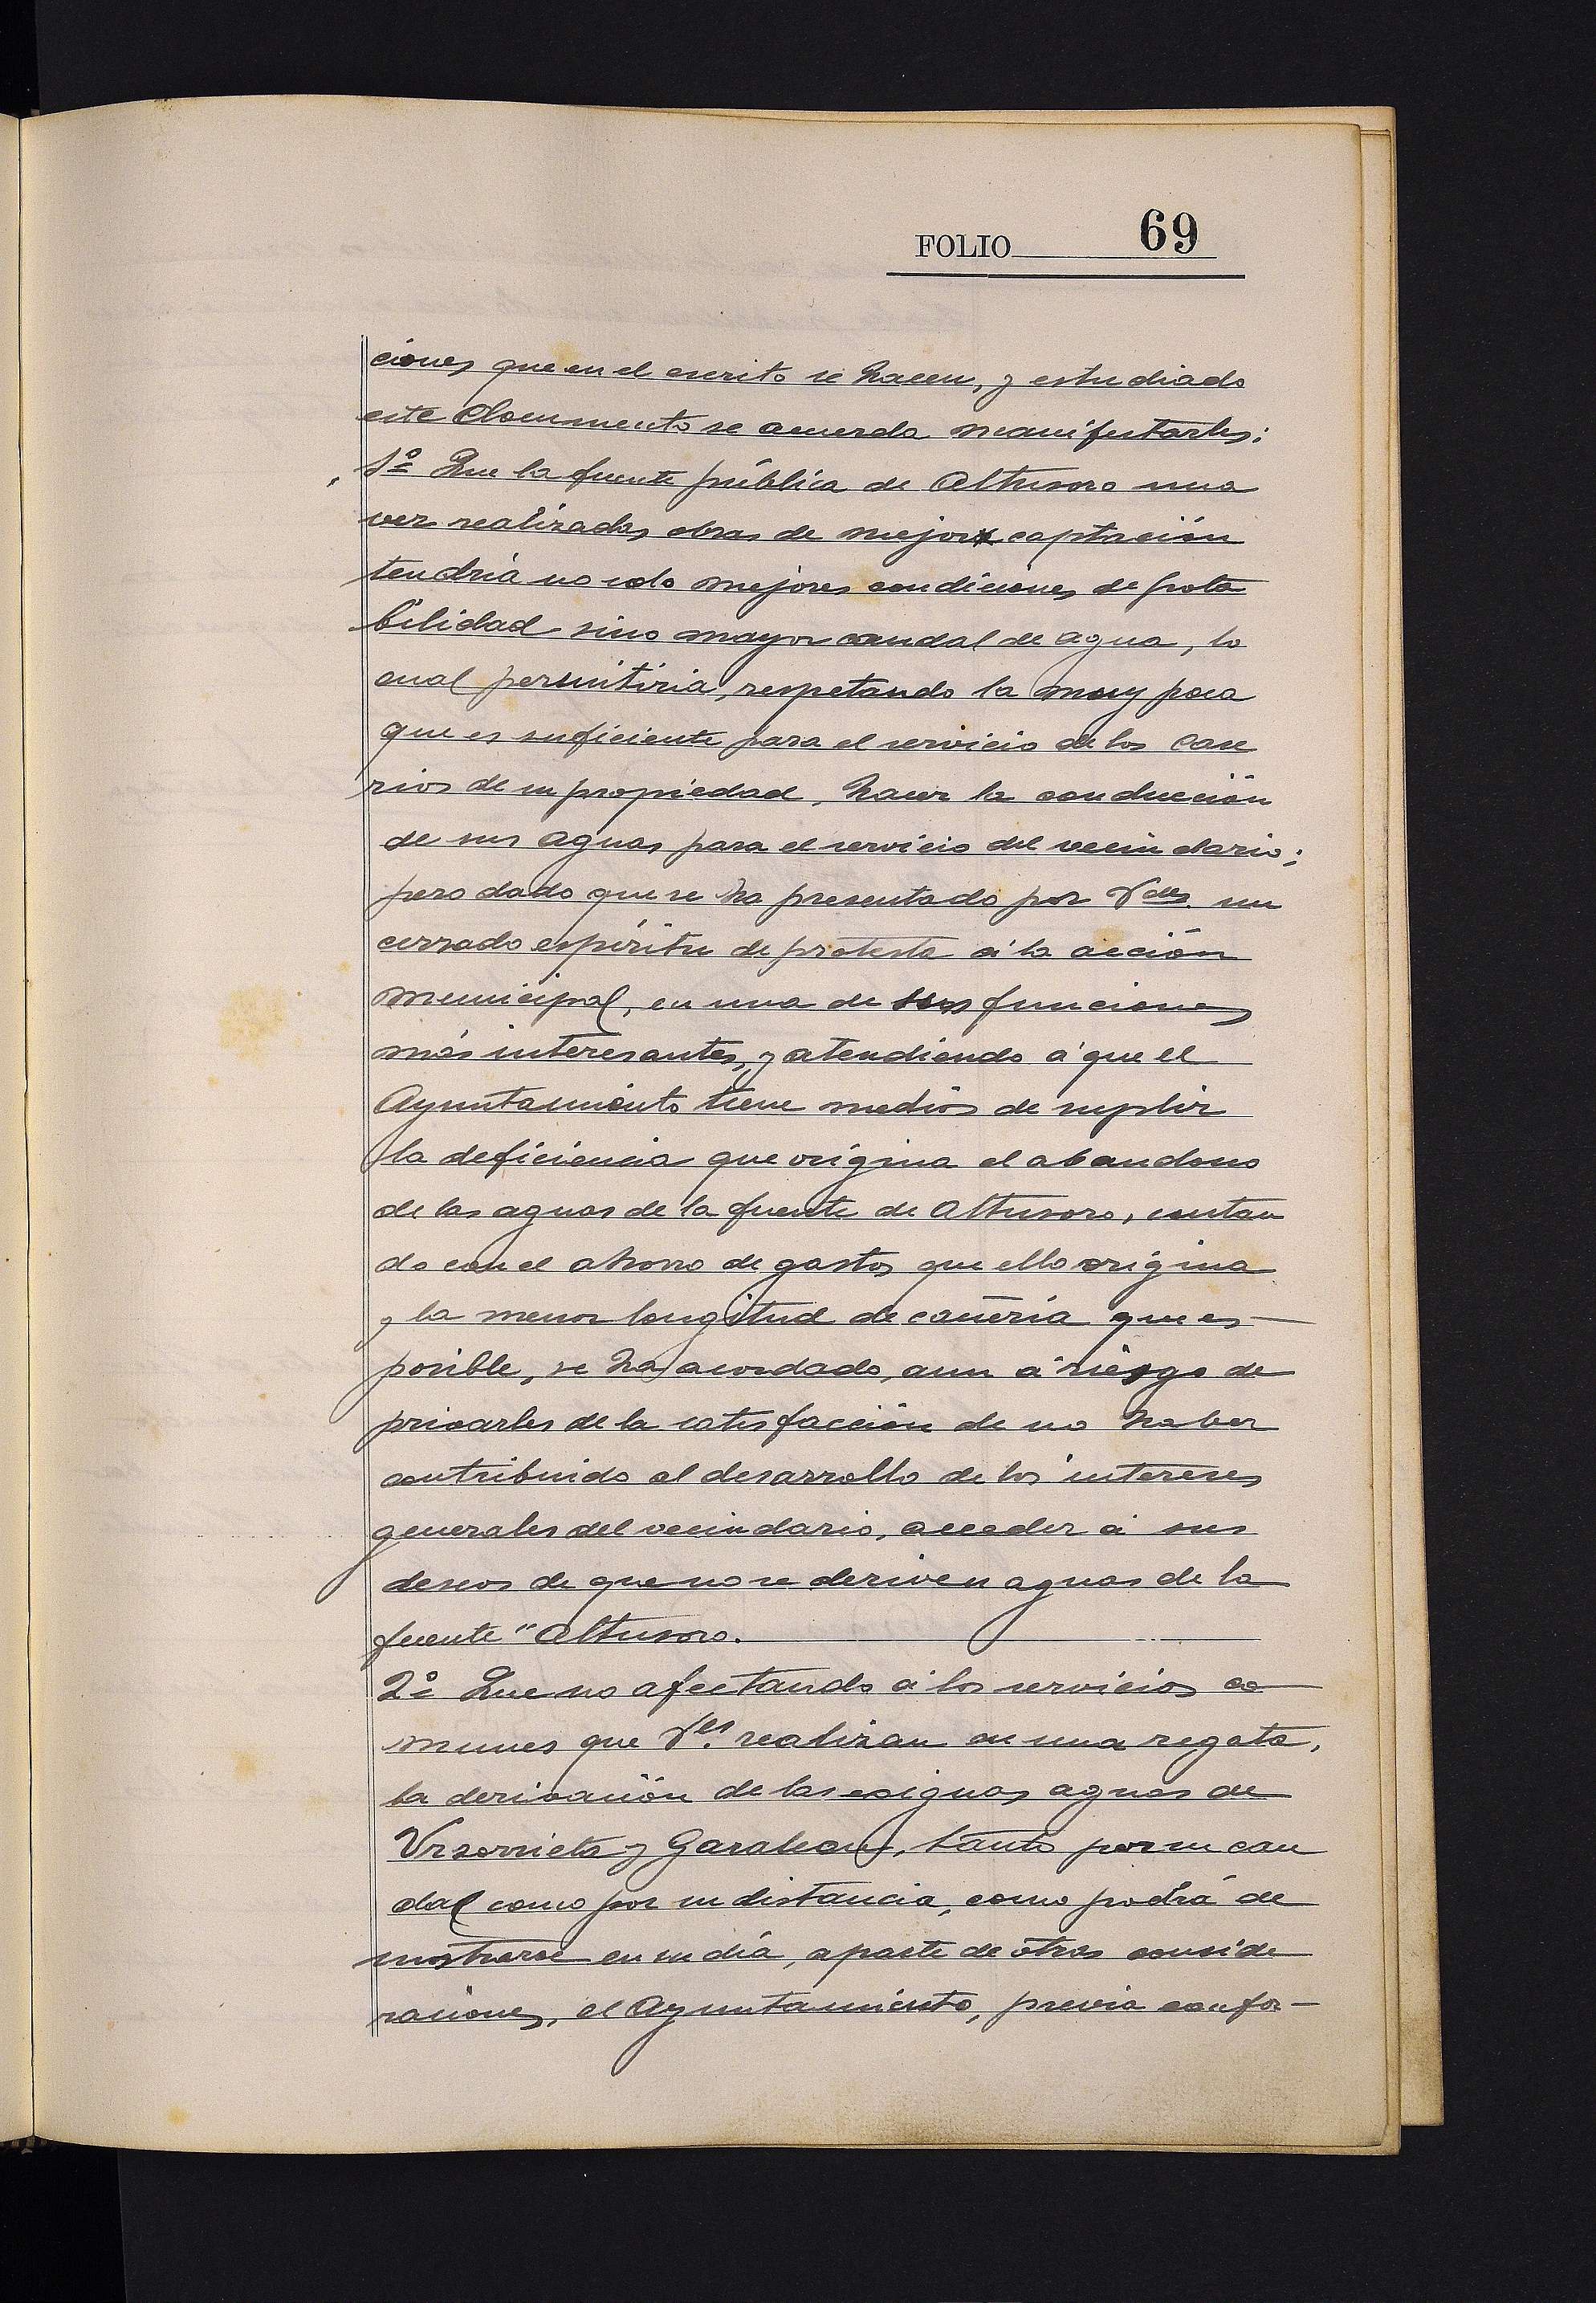 FOLIO 69
ciones que en el escrito se hacen, y estudiado
este documento se acuerda manifestarles:
1º Que la fuente pública de Altusoro una
vez realizadas obras de mejor captación
tendría no solo mejores condiciones de pota
bilidad sino mayor caudal de agua, lo
cual permitiria, respetando la muy poca
que es suficiente para el servicio de los case
rios de su propiedad, hacer la conducción
de sus aguas para el servicio del vecindario;
pero dado que se ha presentado por Vdes. un
cerrado espíritu de protesta á la acción
municipal, en una de sus funciones
más interesantes, y atendiendo á que el
Ayuntamiento tiene medios de suplir
la deficiencia que origina el abandono
de las aguas de la fuente de Altusoro, contan
do con el ahorro de gastos que ello origina
y la menor longitud de cañería que es
posible, se ha acordado, aun á riesgo de
privarles de la satisfacción de no haber
contribuido al desarrollo de los intereses
generales del vecindario, acceder á sus
deseos de que no se deriven aguas de la
fuente "Altusoro.
2º Que no afectando á los servicios co
munes que Ves. realizan en una regata,
la derivación de las exiguas aguas de
Urzorrieta y Garaleou, tanto por su cau
dal como por su distancia, como podrá de
mostrarse en su día, aparte de otras conside
raciones, el Ayuntamiento, previa confor-